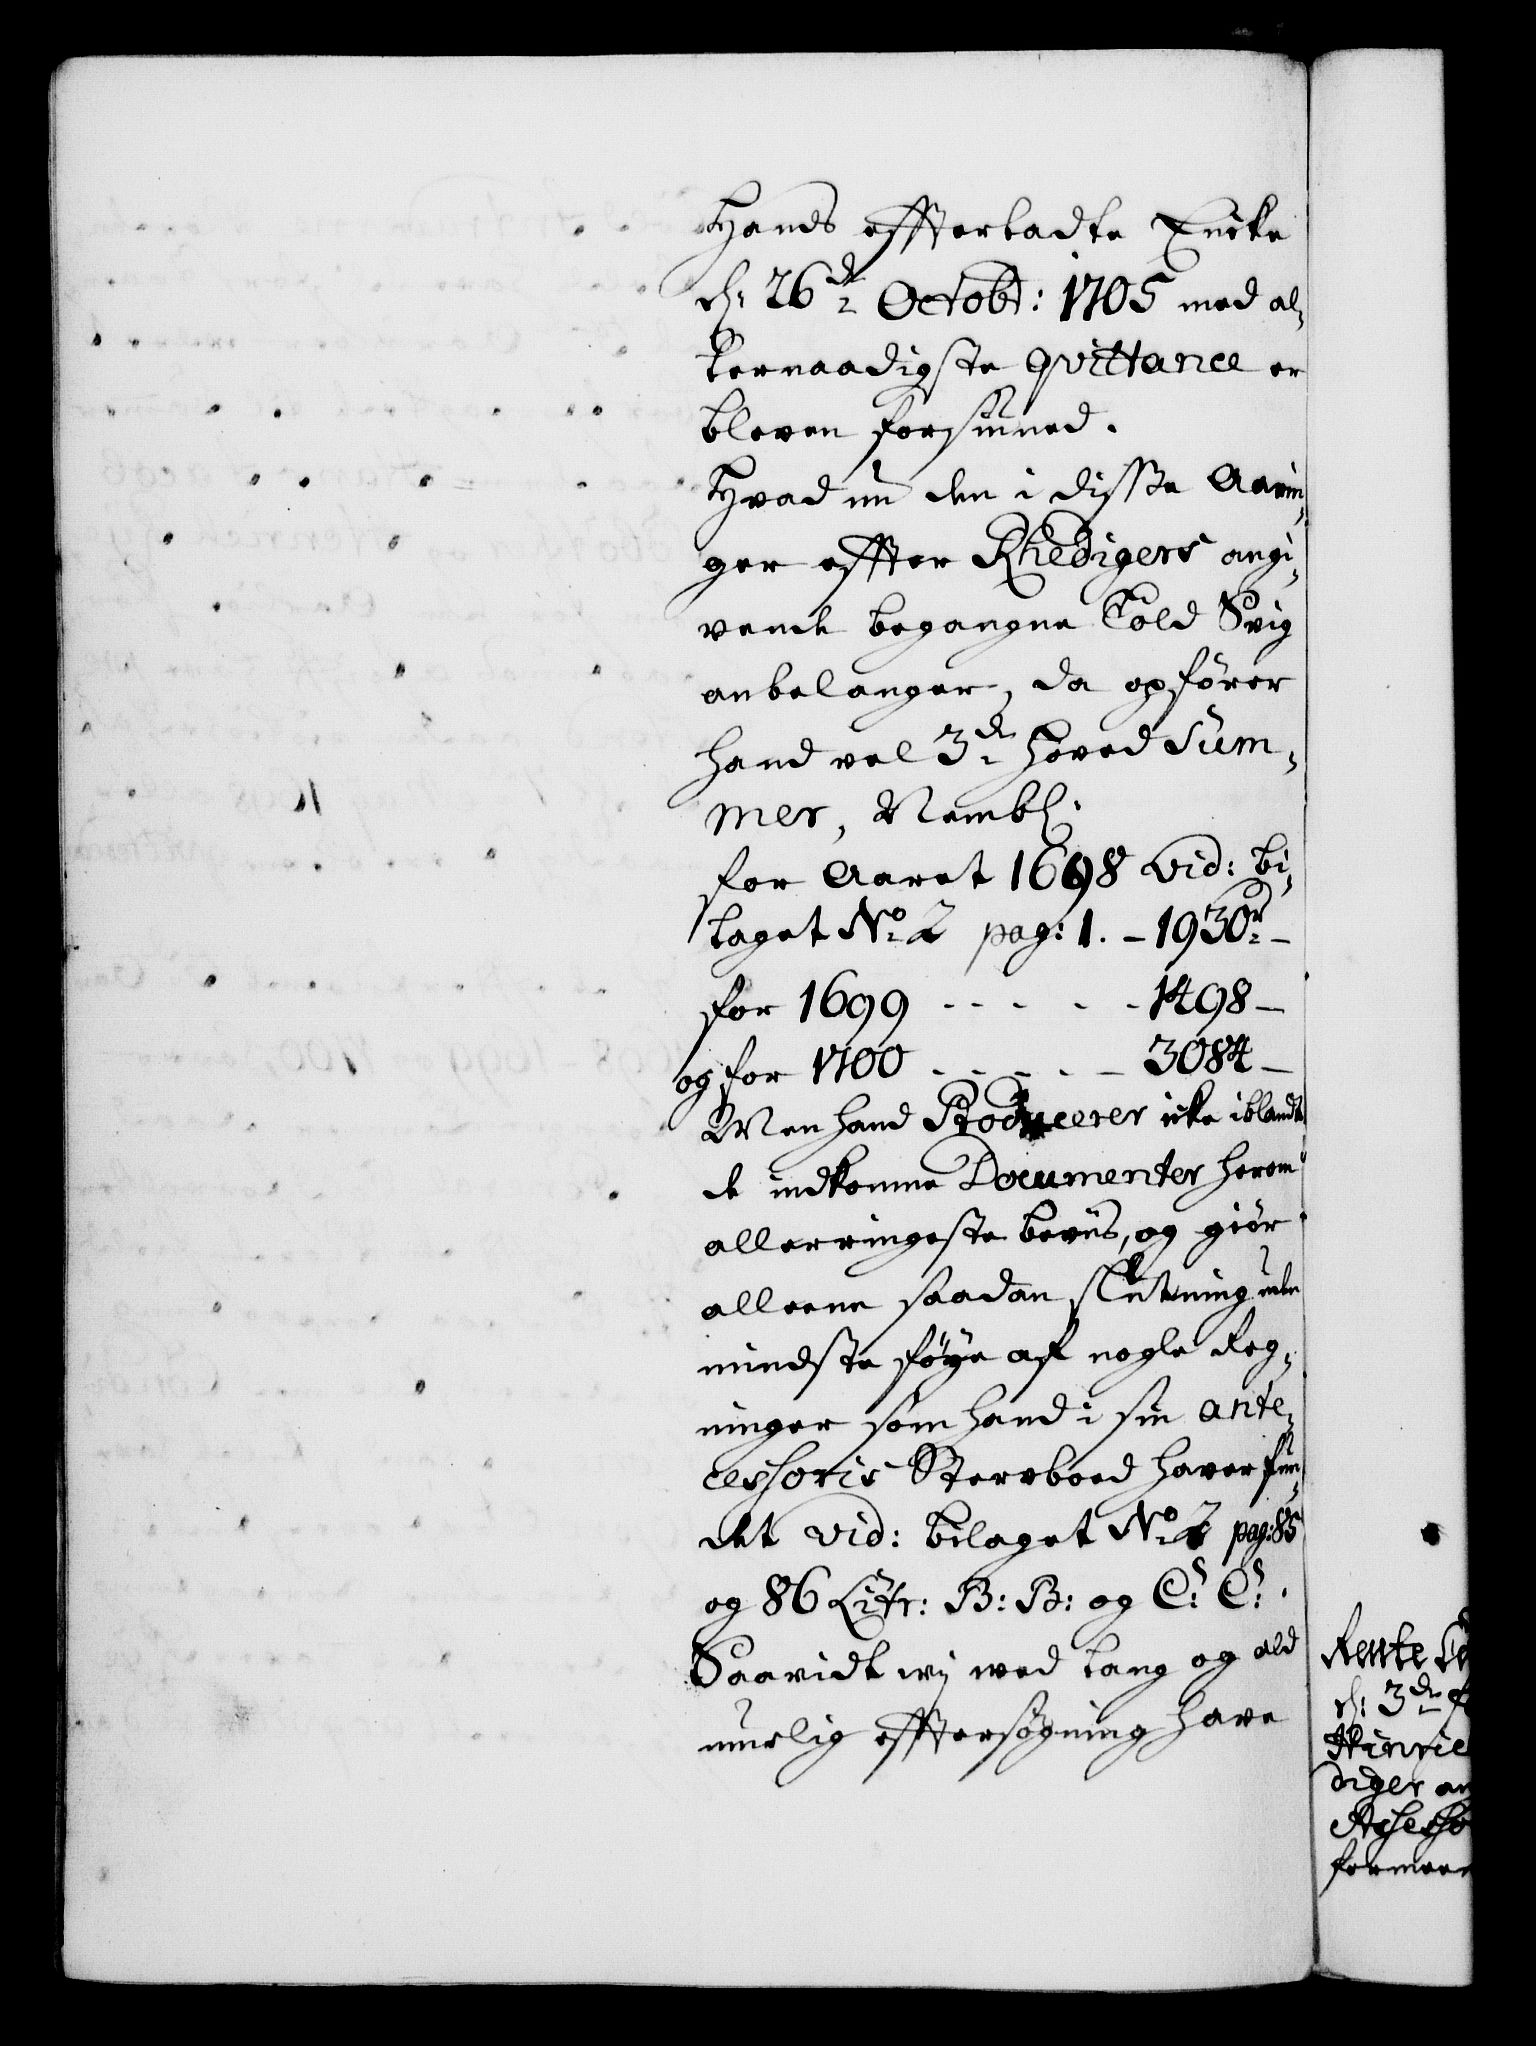 Hands effterladte Encke
d: 26de Octobr: 1705 med al¬
lernaadigste qvittance er
bleven forsiuned.
Hvad nu den i disse Aarin¬
ger effter Rhedigers angi¬
vende begangne Told Svig
anbelanger, da opfører
hand vel 3de Hoved Sum¬
mer, Nembl:
for Aaret 1698 vid: bi¬
laget No 2 pag: 1. – 1930r –
for 1699 - - - - - 1498 –
og for 1700 - - - - – 3084 –
Men hand Producerer icke iblandt
de indkomne Documenter herom
allerringeste beviis, og giør
alleene saadan slutning uden
mindste føye af nogle Reg¬
ninger som hand i sin ante¬
cessoris Sterboed haver fun¬
det vid: bilaget No 2 pag: 85
og 86 Litr: B: B: og C: C:.
Saavidt wj med lang og ald
muelig efftersøgning have
Rente
d: 3de
Hinric
diger an
Assesso
formeen